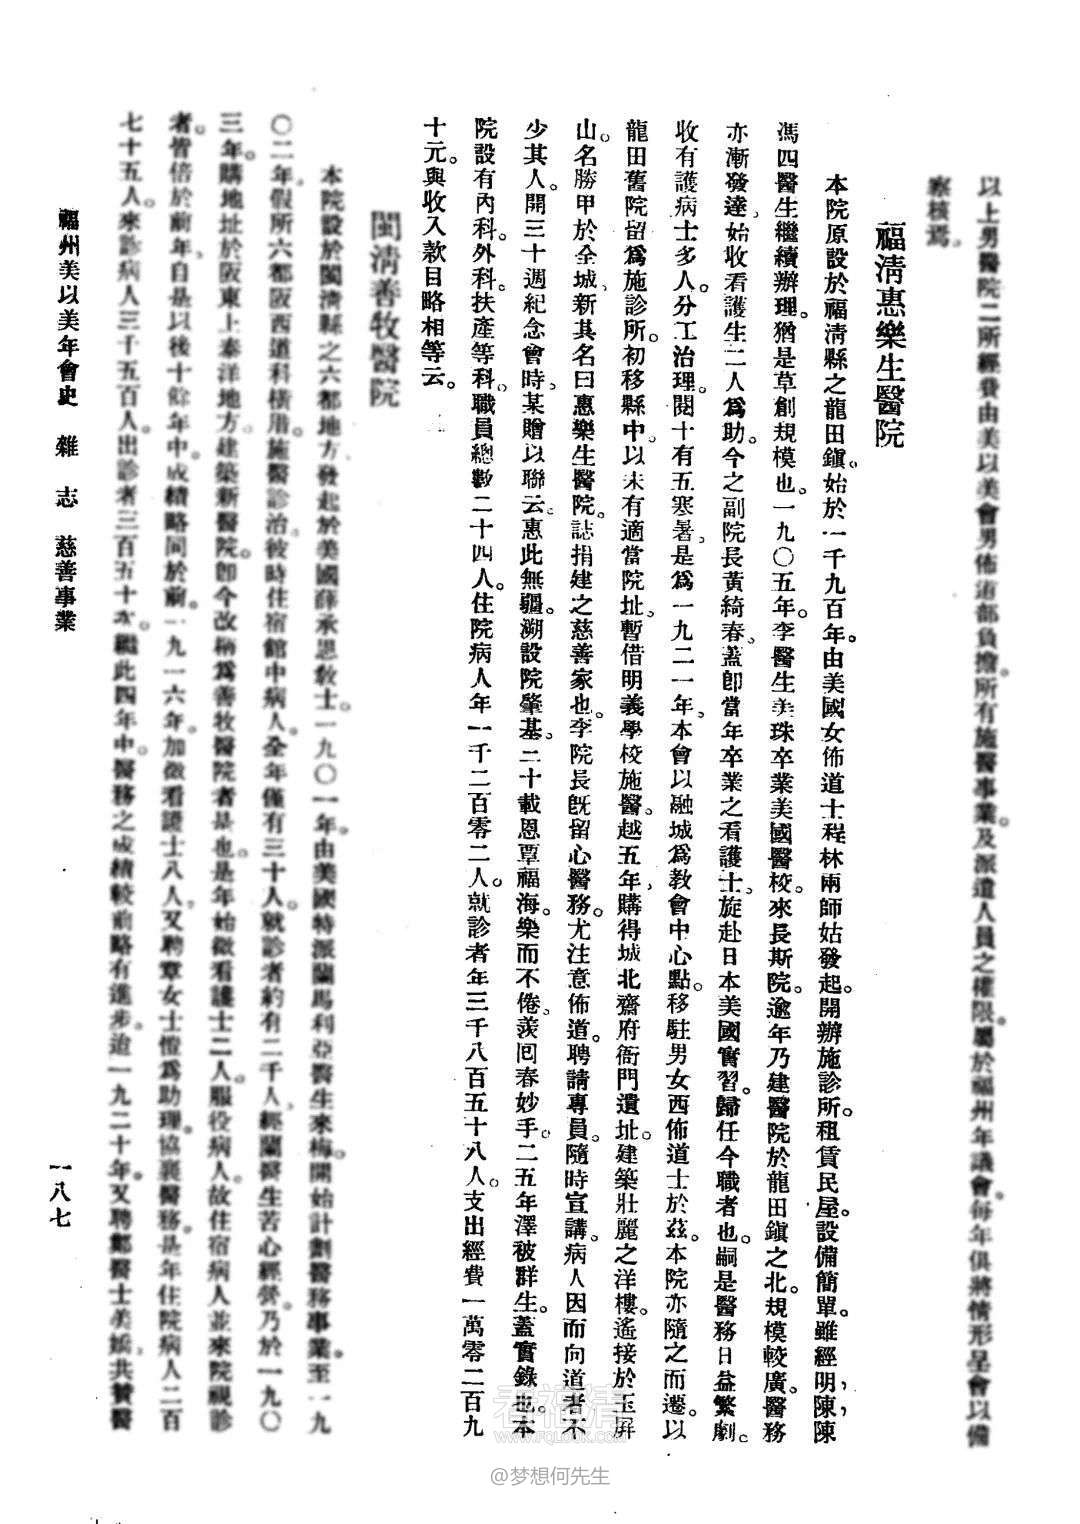 以上男醫院二所經費由美以美會男佈道部負擔。所有施醫事業。及派遣人員之權限。屬於福州年議會。每年俱將情形呈會以備
察核焉。
福清惠樂生醫院
本院原設於福清縣之龍田鎮。始於一千九百年。由美國女佈道士程林兩師姑發起。開辦施診所。租賃民屋。設備簡單。雖經明,陳,陳
馮四醫生繼續辦理。猶是草創規模也。一九〇五年。李醫生美珠卒業美國醫校。來長斯院。逾年乃建醫院於龍田鎮之北。規模較廣。醫務
亦漸發達。始收看護生二人爲助。今之副院長黃綺春。蓋卽當年卒業之看護士。旋赴日本美國實習。歸任今職者也。嗣是醫務日益繁劇。
收有護病士多人。分工治理。閱十有五寒暑。是爲一九二一年。本會以融城爲教會中心點。移駐男女西佈道士於茲。本院亦隨之而遷。以
龍田舊院留爲施診所。初移縣中。以未有適當院址。暫借明義學校施醫。越五年。購得城北齋府衙門遺址。建築壯麗之洋樓。遙接於玉屏
山。名勝甲於全城。新其名曰惠樂生醫院。誌捐建之慈善家也。李院長旣留心醫務。尤注意佈道。聘請專員。隨時宣講。病人因而向道者不
少其人。開三十週紀念會時。某贈以聯云。惠此無疆。溯設院肇基。三十載恩覃福海。樂而不倦。羨囘春妙手。二五年澤被群生。蓋實錄也。本
院設有內科。外科。扶產等科。職員總數二十四人。住院病人年一千二百零二人。就診者年三千八百五十八人。支出經費一萬零二百九
十元。與收入款目略相等云。
閩清善牧醫院
本院設於閩清縣之六都地方。發起於美國薛承恩敎士。一九〇一年。由美國特派蘭馬利亞醫生來梅。開始計劃醫務事業。至一九
〇二年。假所六都阪西道科橫厝。施醫診治。彼時住宿館中病人。全年僅有三十人。就診者約有二千人。經蘭醫生苦心經營。乃於一九〇
三年。購地址於阪東上泰洋地方。建築新醫院。卽今改稱爲善牧醫院者是也。是年始徵看護士二人。服役病人。故住宿病人並來院視診
者。皆倍於前年。自是以後十餘年中。成績略同於前。一九一六年。加徵看護士八人。又聘羣女士愷爲助理。協襄醫務。是年住院病人二百
七十五人。來診病人三千五百人。出診者三百五十次。繼此四年中。醫務之成績較前略有進步。迨一九二十年。又聘鄭醫士美嬌。共贊醫
福州美以美年會史 雜志 慈善事業
一八七
看福清
WWW.FQLOOK.COM
@梦想何先生